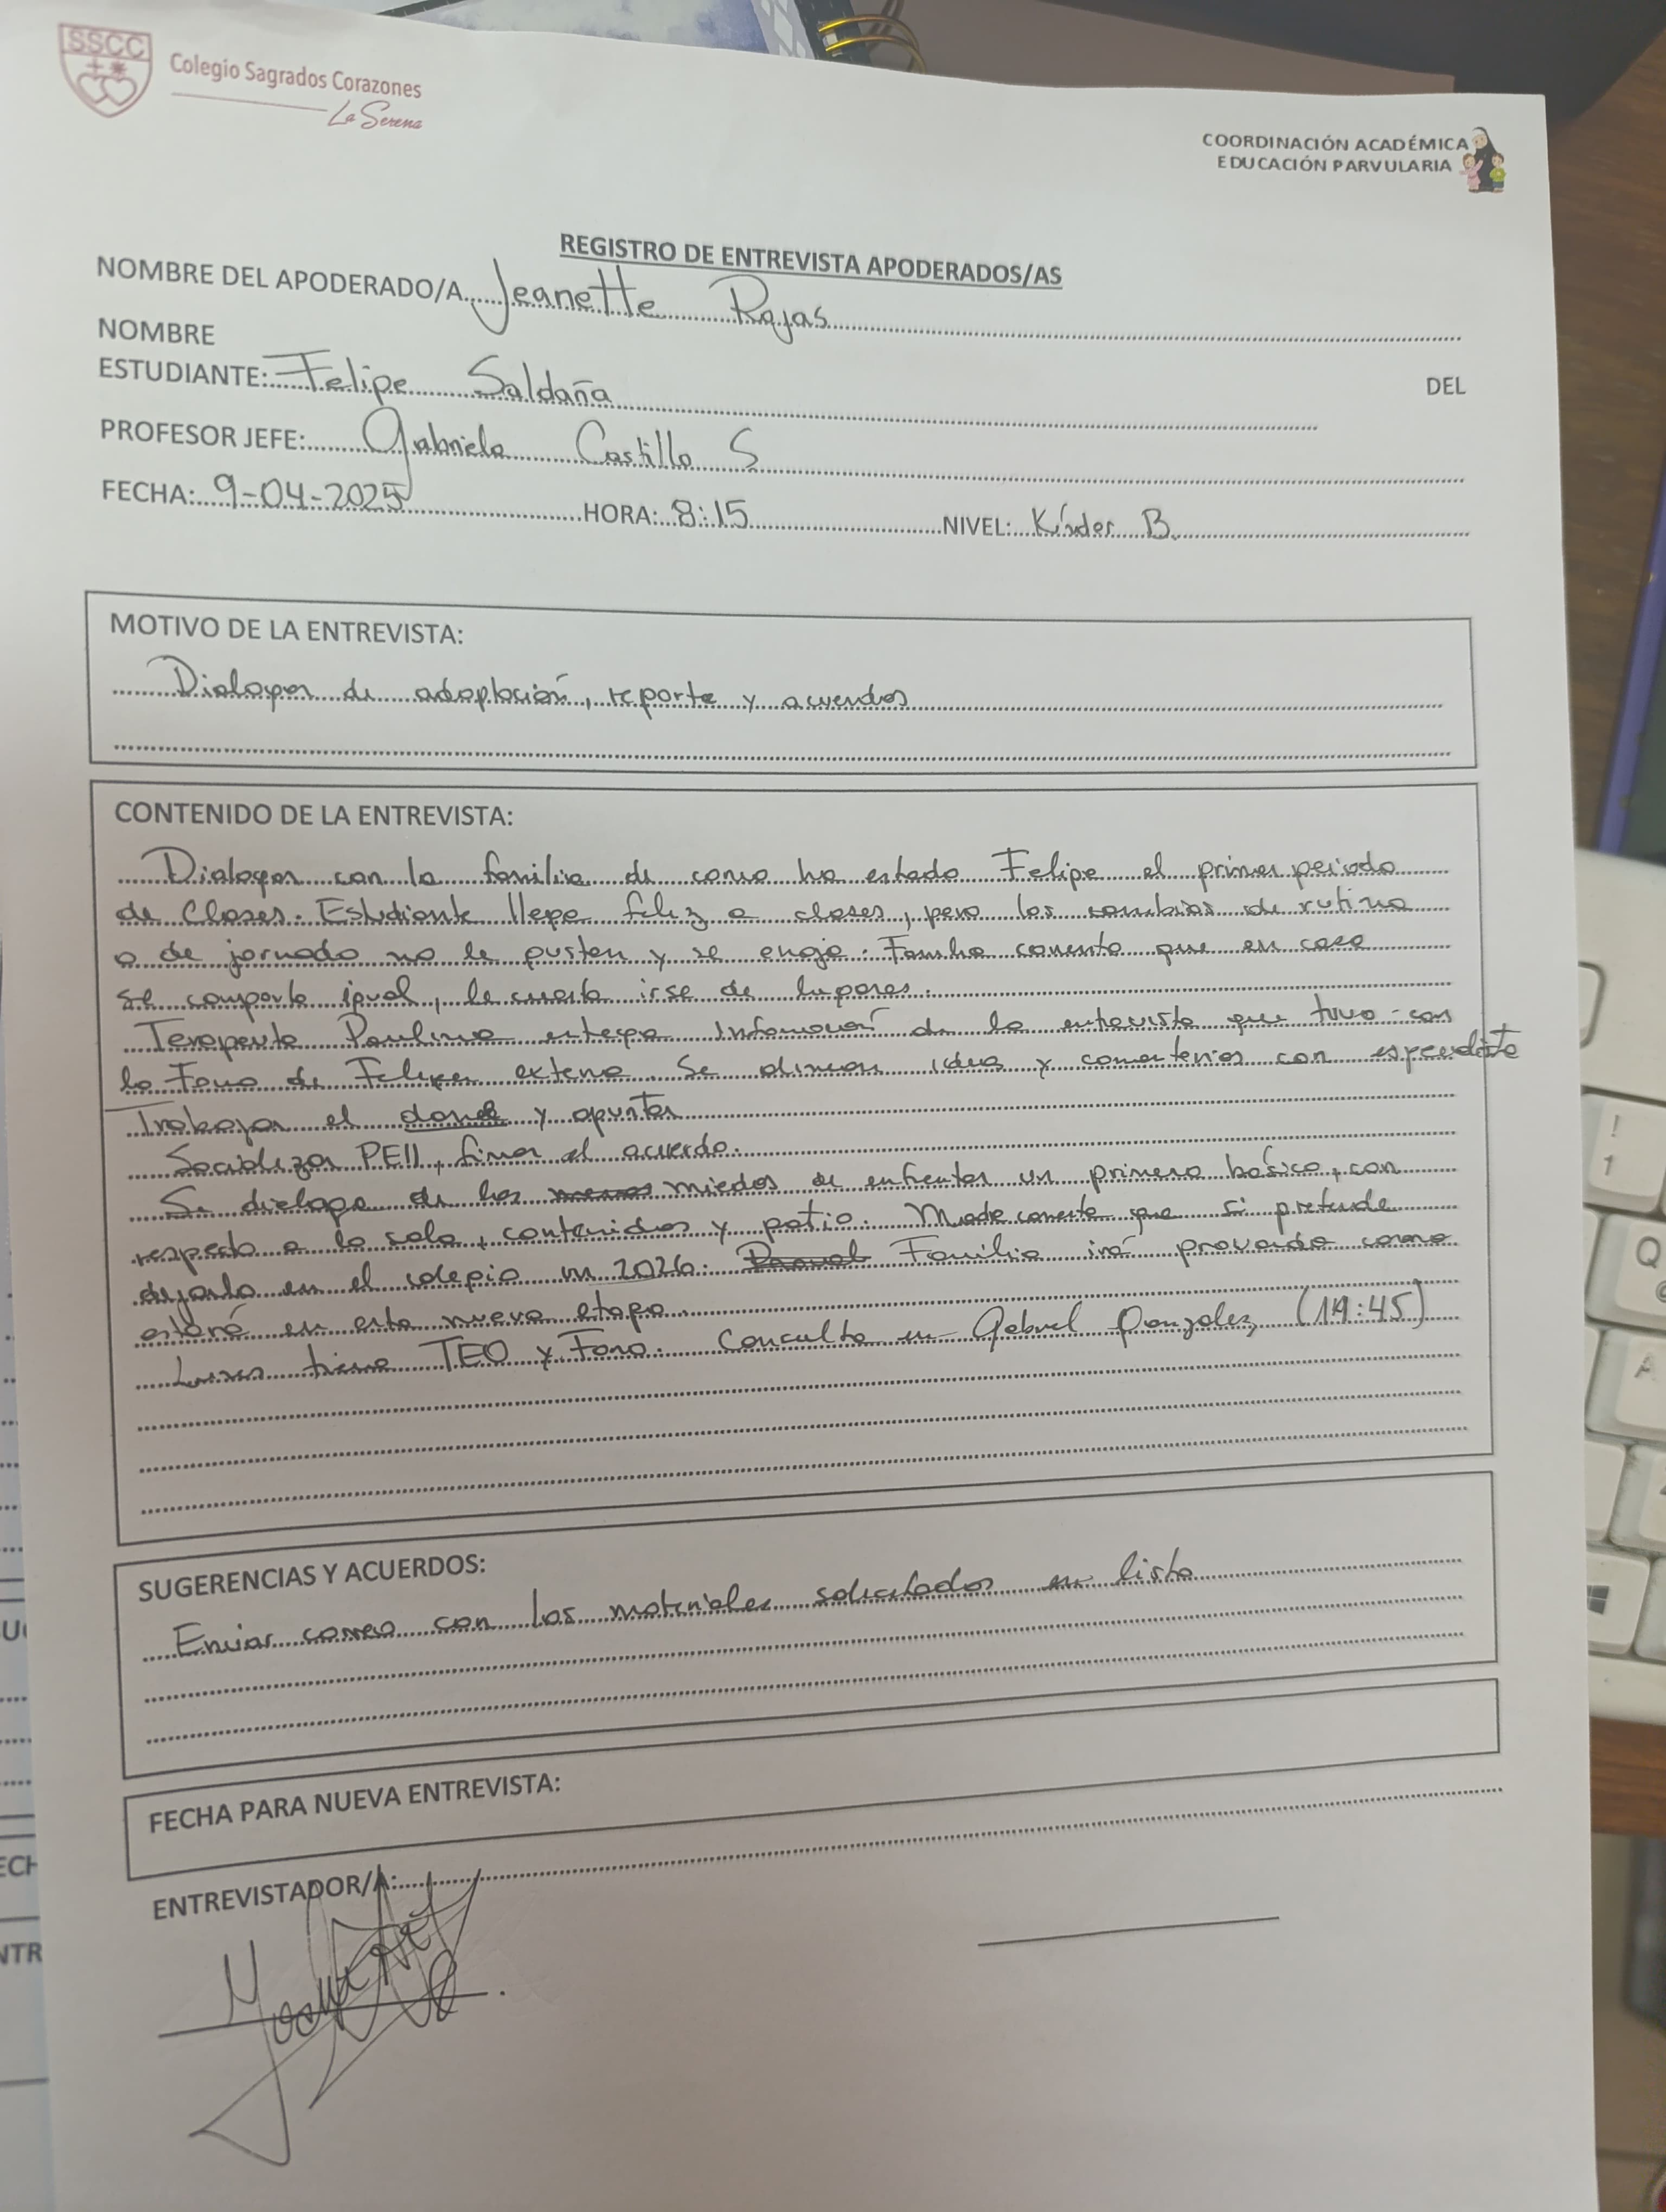 SSCC
Colegio Sagrados Corazones
La Serena
COORDINACIÓN ACADÉMICA
EDUCACIÓN PARVULARIA
REGISTRO DE ENTREVISTA APODERADOS/AS
NOMBRE DEL APODERADO/A Jeanette Rojas
NOMBRE
DEL
ESTUDIANTE: Felipe Saldaña
PROFESOR JEFE: Gabriela Castillo S
FECHA: 9-04-2025 HORA: 8:15 NIVEL: Kínder B.
MOTIVO DE LA ENTREVISTA:
Dialogar de adaptación, reporte y acuerdos
CONTENIDO DE LA ENTREVISTA:
Dialogar con la familia de como ha estado Felipe el primer periodo
de clases. Estudiante llega feliz a clases, pero los cambios de rutina
o de jornada no le gustan y se enoja. Familia comenta que en casa
se comporta igual, le cuesta irse de lugares.
Terapeuta Paulina entega Información de la entrevista que tuvo con
la Fono de Felipe externa. Se ideas y comentarios con
Trabajar el donde y apuntar
Sociabilizar PEII, firmar el acuerdo.
Se dialoga de los miedos de enfrentar un primero básico, con
respecto a la sala, contenidos y patio. Madre comenta que si pretende
dejarlo en el colegio en 2026. Familia irá provando como
estará en esta nueva etapa.
Lunes tiene TEO y Fono. Consulta en Gabriel Gonzalez (14:45)
SUGERENCIAS Y ACUERDOS:
Enviar correo con los materiales solicitados en lista
FECHA PARA NUEVA ENTREVISTA:
ENTREVISTADOR/A: